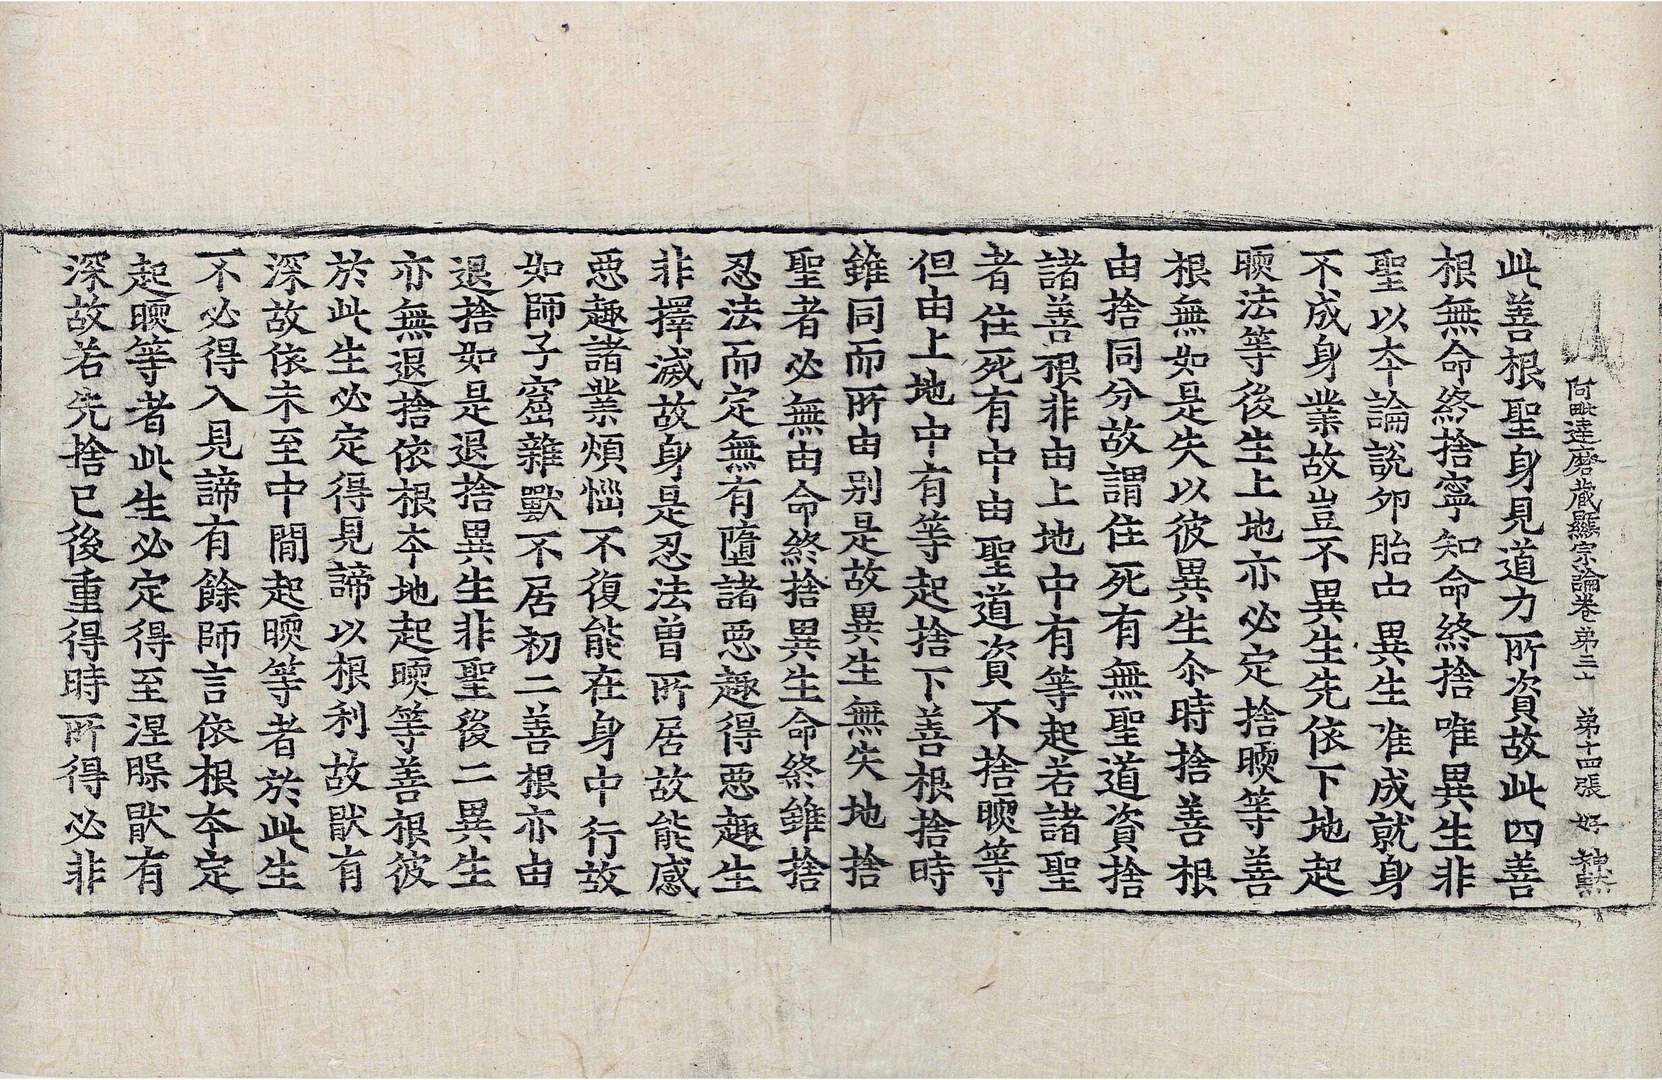 阿毗達磨蔵顯宗論卷第三十 第十四張 好
此善根聖身見道力所資故此四善
根無命終捨寧知命終捨唯異生非
聖以夲論說夘胎中異生唯成就身
不成身業故豈不異生先依下地起
暝法等後生上地亦必定捨暝等善
根無如是失以彼異生尒時捨善根
由捨同分故謂住死有無聖道資捨
諸善根非由上地中有等起若諸聖
者住死有中由聖道資不捨暝等
但由上地中有等起捨下善根捨時
雖同而所由别是故異生無失地捨
聖者必無由命終捨異生命終雖捨
忍法而定無有墮諸惡趣得惡趣生
非擇滅故身是忍法曽所居故能感
惡趣諸業煩惱不復能在身中行故
如師子窟雜獸不居初二善根亦由
退捨如是退捨異生非聖後二異生
亦無退捨依根夲地起暝等善根彼
於此生必定得見諦以根利故猒有
深故依未至中間起暝等者於此生
不必得入見諦有餘師言依根夲定
起暝等者此生必定得至涅槃猒有
深故若先捨已後重得時所得必非